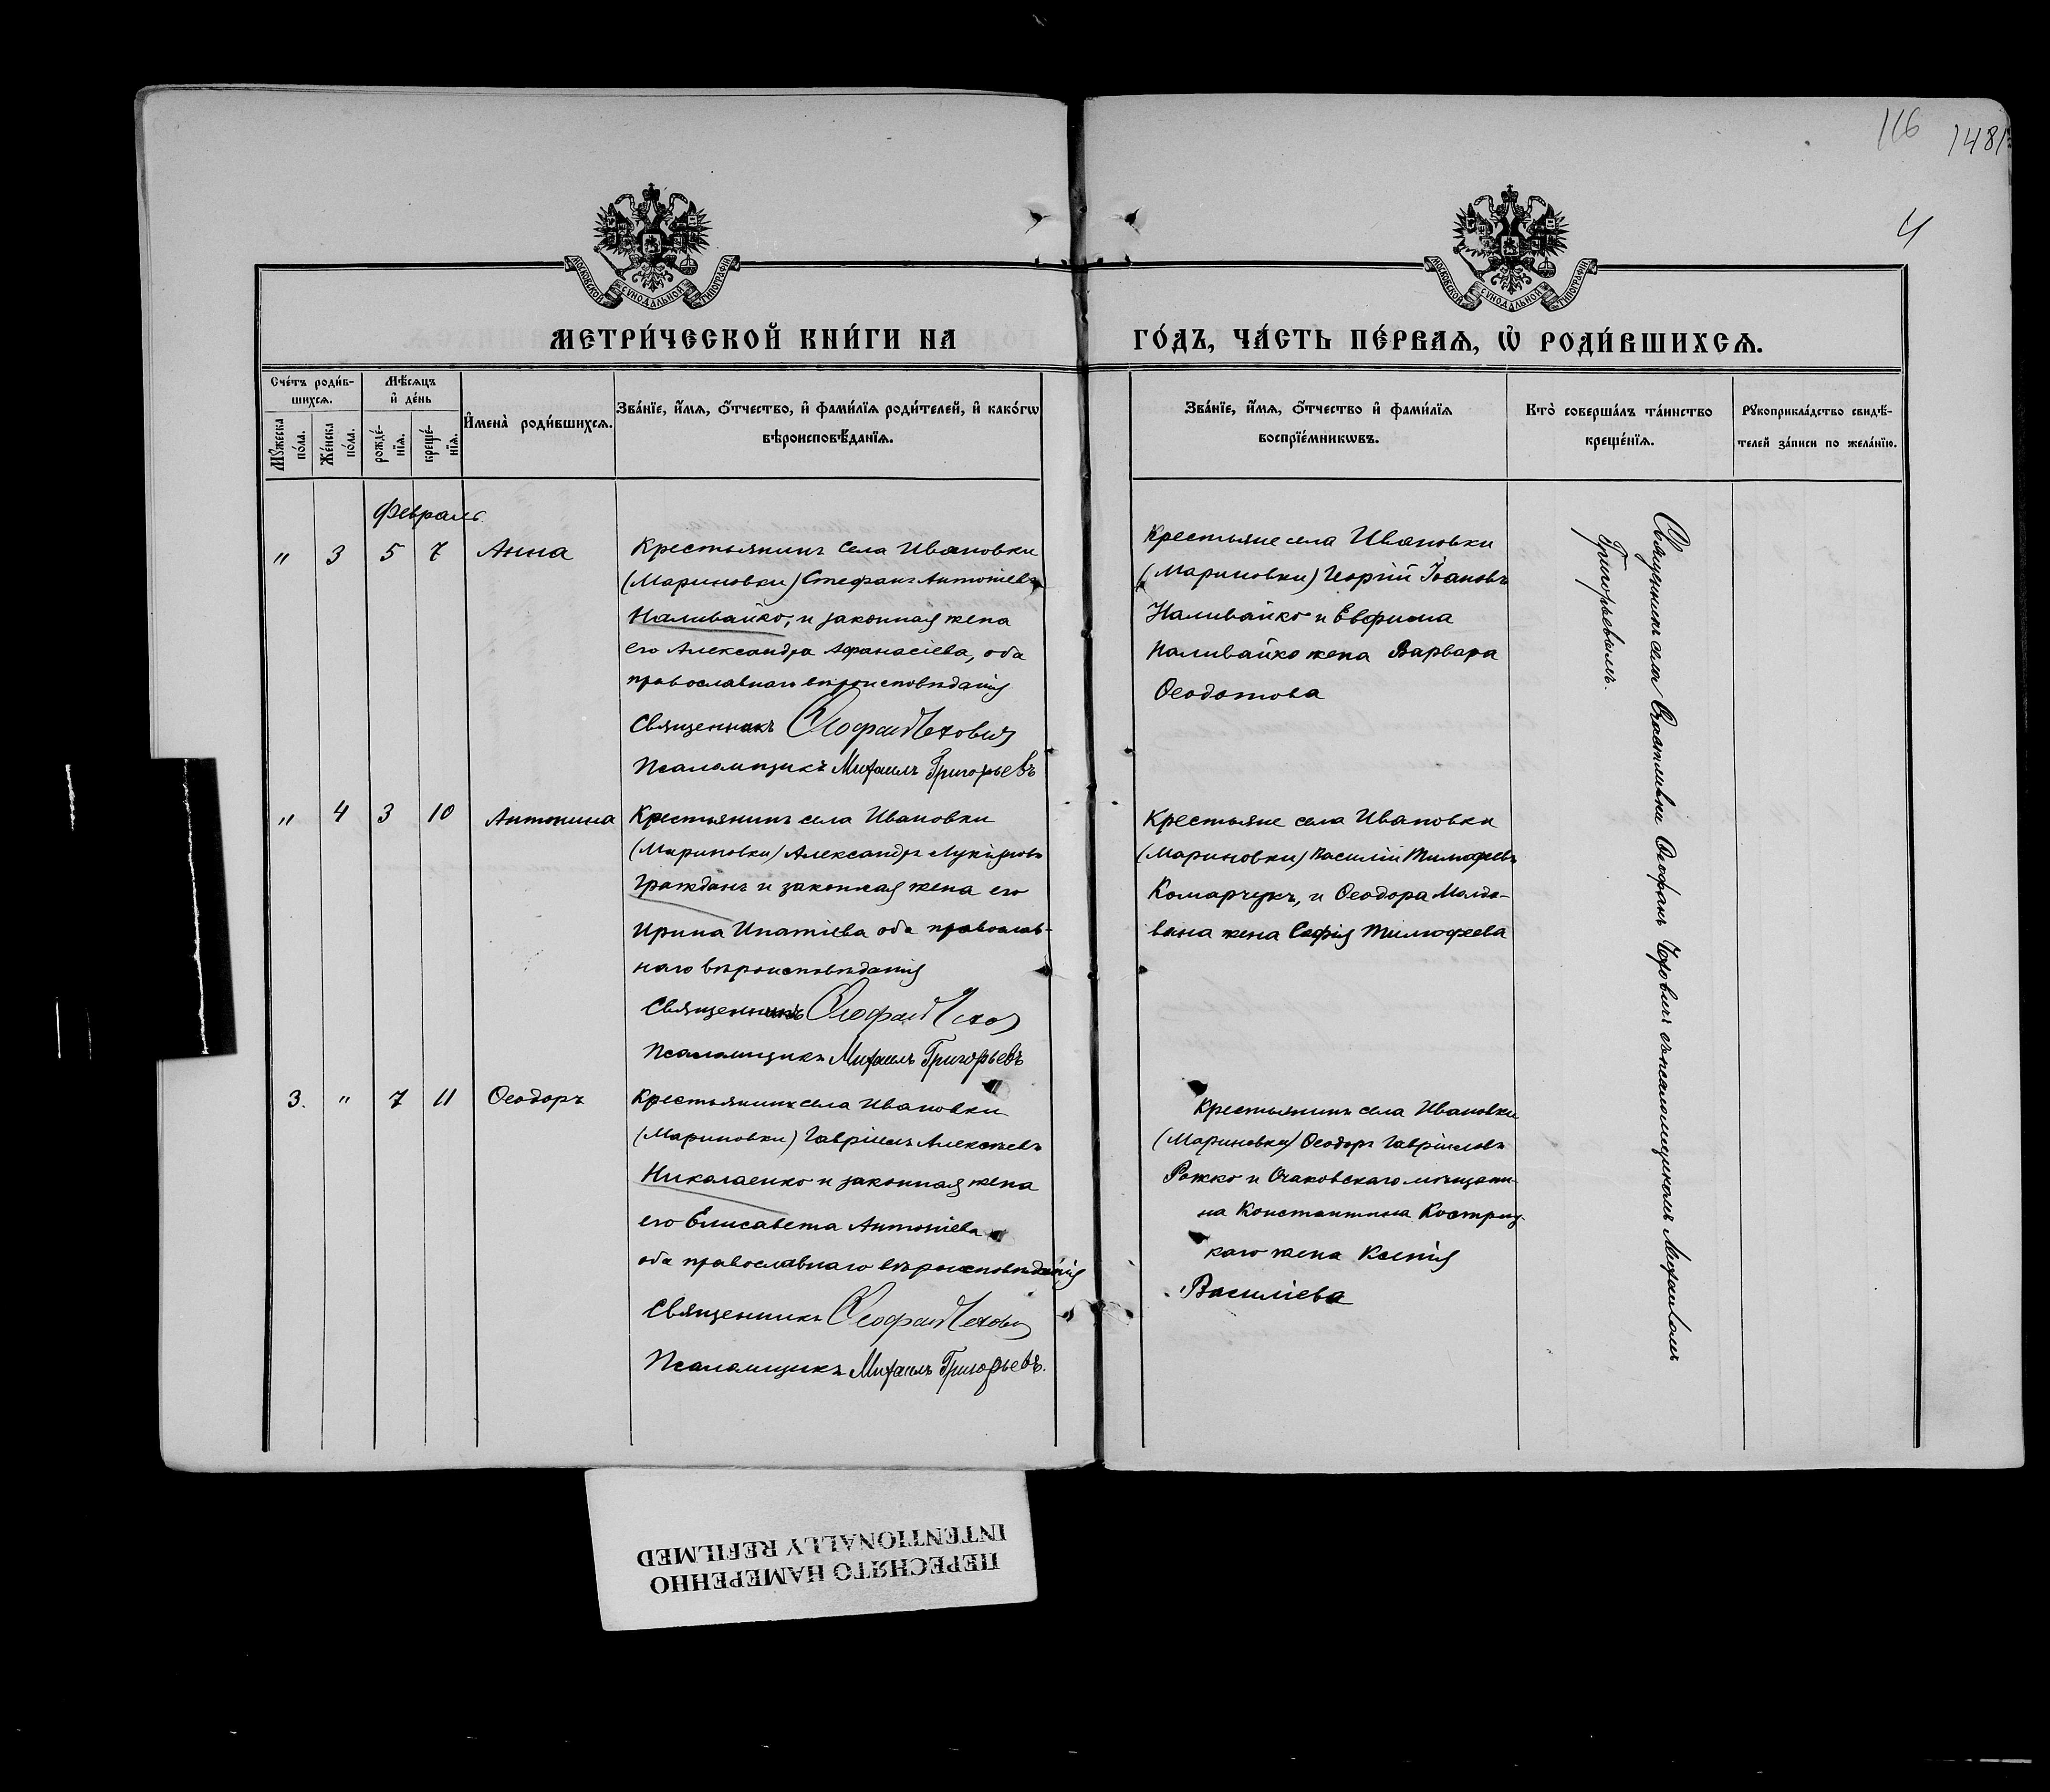 116 1481
4
МОСКОВСКОЙ СѴНОДАЛЬНОЙ ТИПОГРАФІИ
МОСКОВСКОЙ СѴНОДАЛЬНОЙ ТИПОГРАФІИ
МЕТРИ́ЧЕСКОЙ КНИ́ГИ НА
ГО́ДЪ, ЧА́СТЬ ПЕ́РВАѦ, Ѡ҆ РОДИ́ВШИХСѦ.
Сче́тъ роди́в-
шихсѧ.
Мꙋ́жеска
по́ла.
Же́нска
по́ла.
Мѣ́сѧцъ
и҆ де́нь
рожде́-
нїѧ.
креще́-
нїѧ.
И҆мена̀ роди́вшихсѧ.
Зва́нїе, и҆́мѧ, ѻ҆́тчество, и҆ фами́лїѧ роди́телей, и҆ како́гѡ
вѣроисповѣ́данїѧ.
Зва́нїе, и҆́мѧ, ѻ҆́тчество и҆ фами́лїѧ
воспрїе́мникѡвъ.
Кто̀ соверша́лъ та́инство
креще́нїѧ.
Рꙋкоприкла́дство свидѣ́-
телей за́писи по жела́нїю.
Февраль
" 3 5 7 Анна
Крестьянинъ села Ивановки
(Мариновки) Стефанъ Антоніевъ
Наливайко, и законная жена
его Александра Афанасіева, оба
православнаго вѣроисповѣданія
Священникъ Ѳеофанъ Чехович
Псаломщикъ Михаилъ Григорьевъ
Крестьяне села Ивановки
(Мариновки) Георгій Іоановъ
Наливайко и Евфима
Наливайко жена Варвара
Ѳеодотова
" 4 3 10 Антонина
Крестьянинъ села Ивановки
(Мариновки) Александръ Лукіяновъ
Гражданъ и законная жена его
Ирина Ипатіева оба православ-
наго вѣроисповѣданія
Священникъ Ѳеофанъ Чехов
Псаломщикъ Михаилъ Григорьевъ
Крестьяне села Ивановки
(Мариновки) Василій Тимофеевъ
Комарчукъ, и Ѳеодора Молдо-
вана жена Софія Тимофеева
3. " 7 11 Ѳеодоръ
Крестьянинъ села Ивановки
(Мариновки) Гавріилъ Алексѣевъ
Николаенко и законная жена
его Елисавета Антоніева
оба православнаго вѣроисповѣданія
Священникъ Ѳеофанъ Чехович
Псаломщикъ Михаилъ Григорьевъ.
Крестьянинъ села Ивановки
(Мариновки) Ѳеодоръ Гавріиловъ
Рожко и Очаковскаго мѣщани-
на Константина Костриц-
каго жена Ксенія
Василіева
Священникъ села Счастливки Ѳеофанъ Чехович съ псаломщикомъ Михаиломъ
Григорьевымъ.
ПЕРЕСНЯТО НАМЕРЕННО
INTENTIONALLY REFILMED